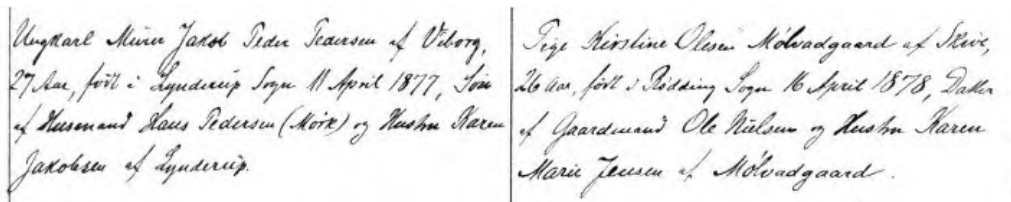 Ungkarl Murer Jakob Peder Pedersen af Viborg,
27 Aar, født i Lynderup Sogn 11 April 1877, Søn
af Husmand Hans Pedersen (Mørk) og Hustru Karen
Jakobsen af Lynderup.
Pige Kirstine Olesen Mølvadgaard af Skive,
26 Aar, født i Rødding Sogn 16 April 1878, Datter
af Gaardmand Ole Nielsen og Hustru Karen
Marie Jensen af Mølvadgaard.